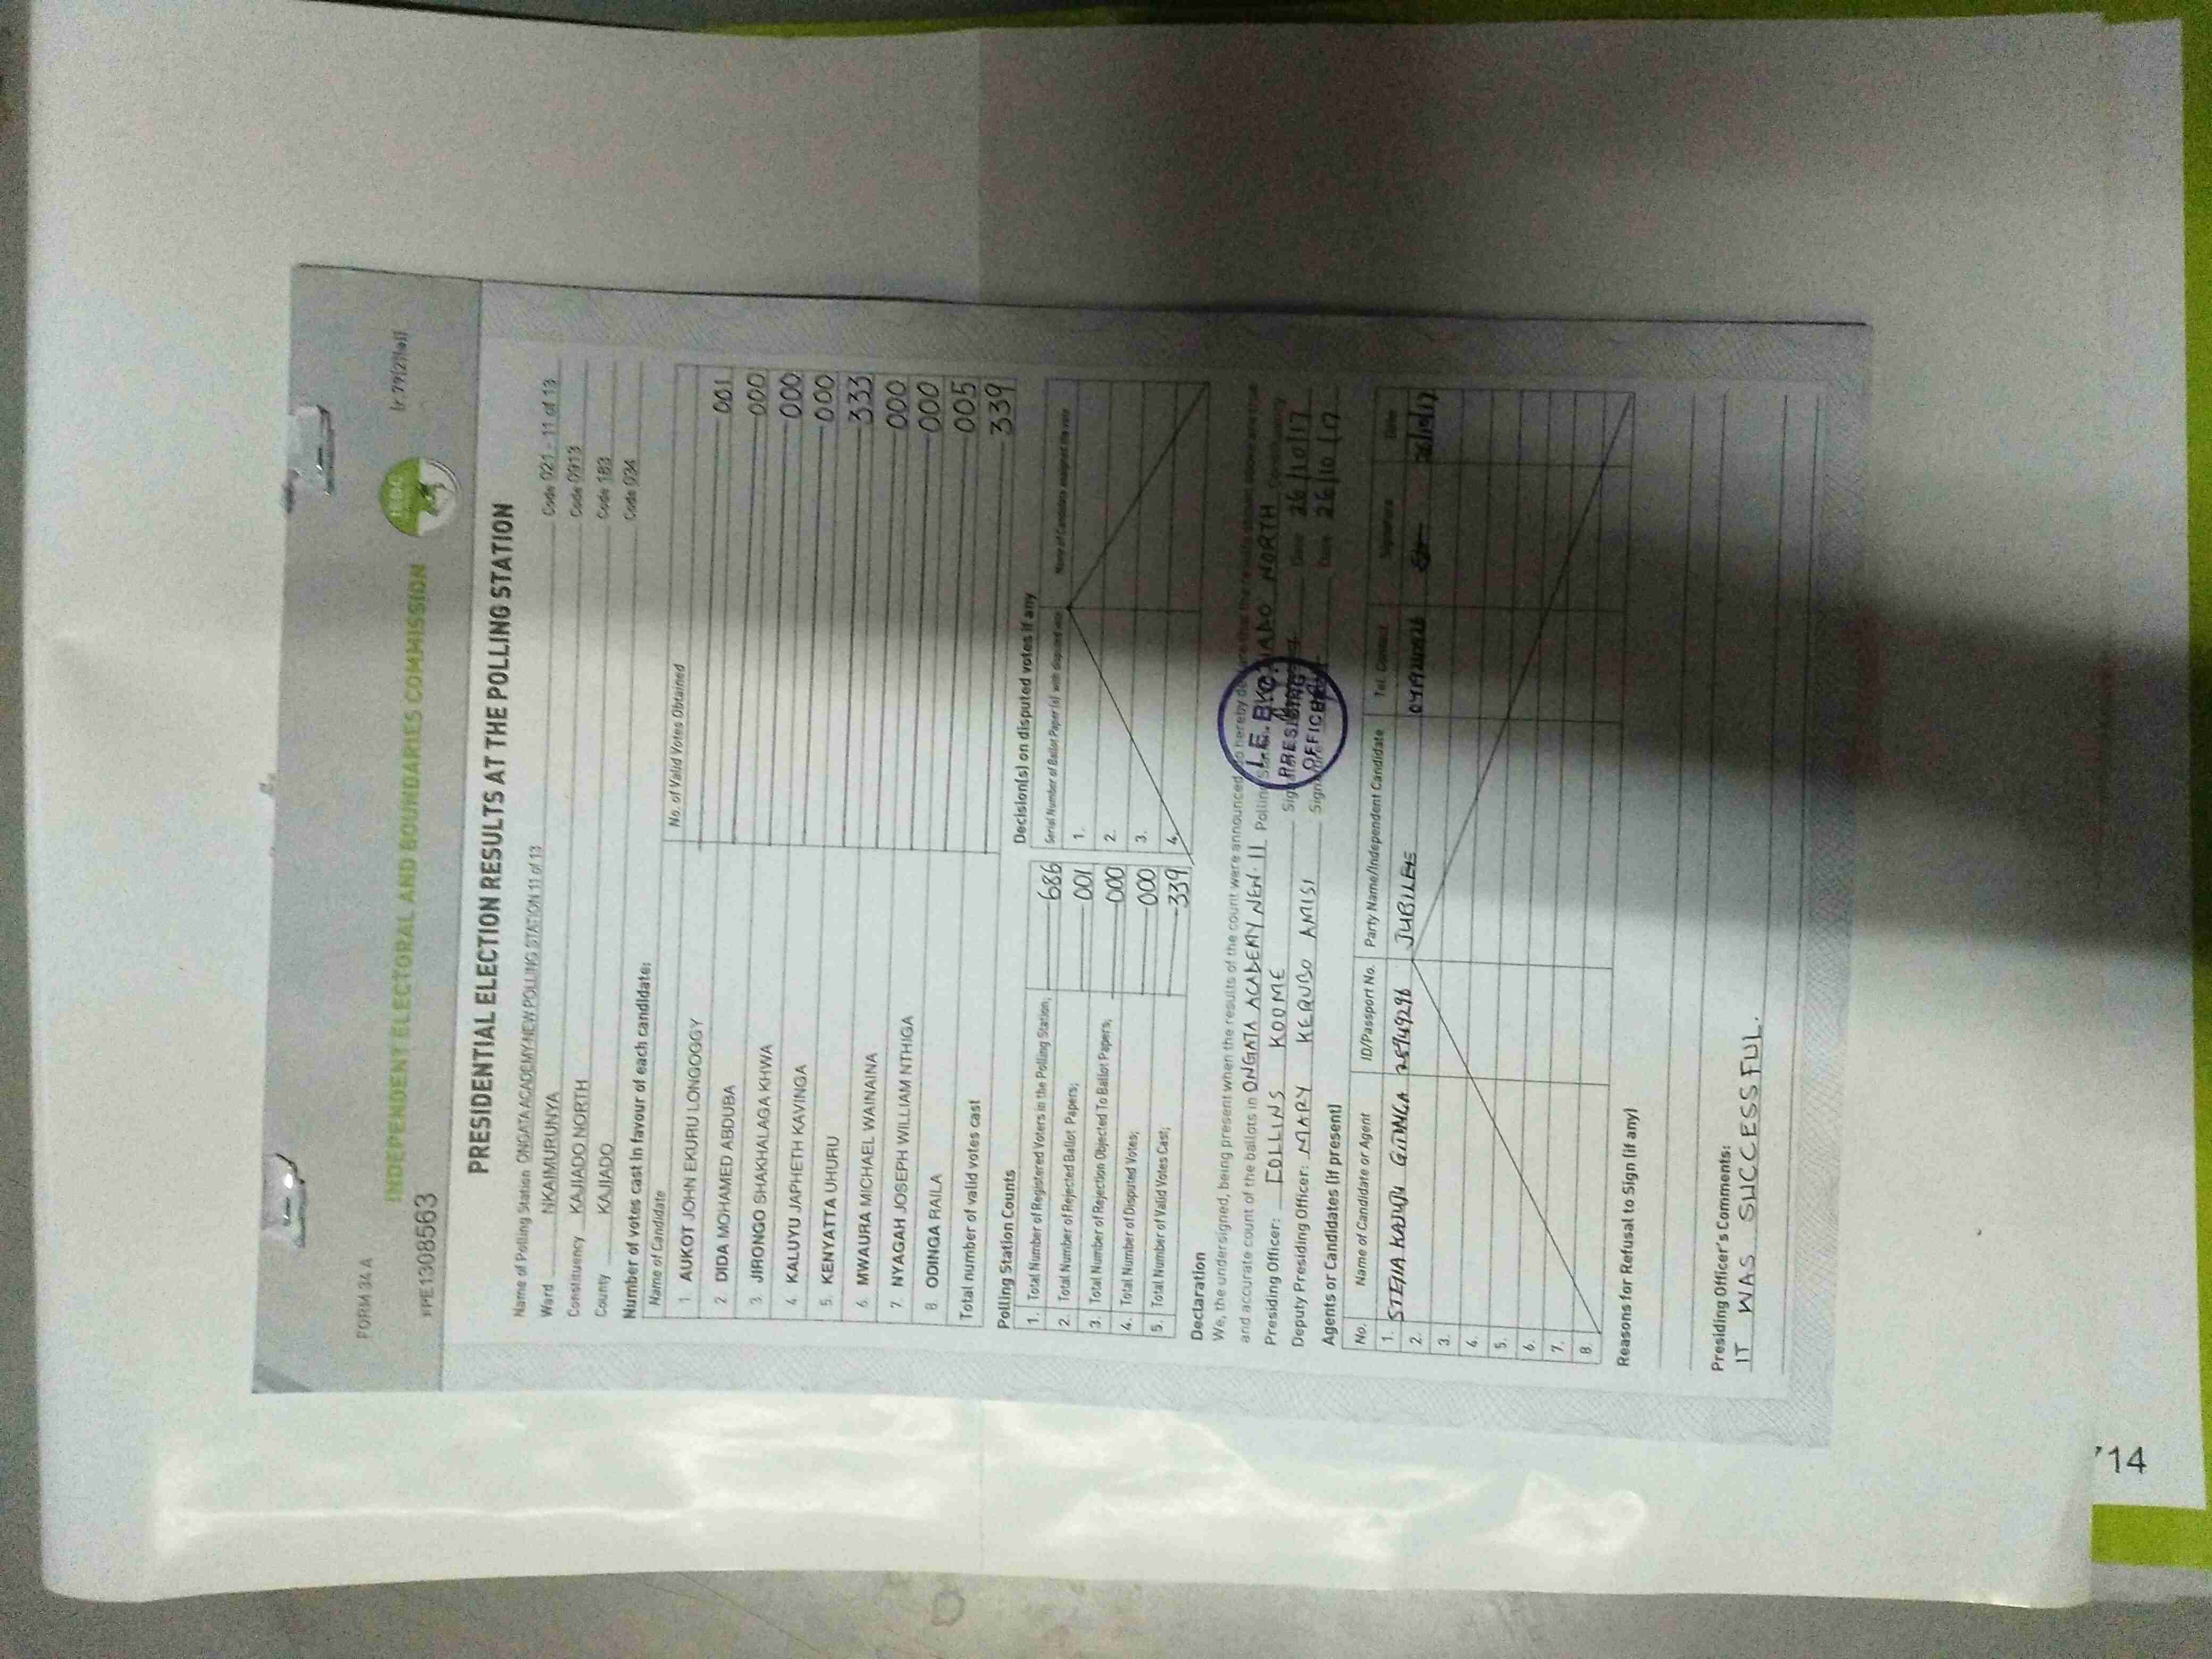 FORM 34 A
INDEPENDENT ELECTORAL AND BOUNDARIES COMMISSION
IEBC
PE13085563
PRESIDENTIAL ELECTION RESULTS AT THE POLLING STATION
Name of Polling Station ONGATA ACADEMY-NEW POLLING STATION 11 of 13 Code 021 - 11 of 13
Ward NKAIMURUNYA Code 0913
Constituency KAJIADO NORTH Code 183
County KAJIADO Code 034
Number of votes cast in favour of each candidate:
Name of Candidate No. of Valid Votes Obtained
1. AUKOT JOHN EKURU LONGOGGY 001
2. DIDA MOHAMED ABDUBA 000
3. JIRONGO SHAKHALAGA KHWA 000
4. KALUYU JAPHETH KAVINGA 000
5. KENYATTA UHURU 333
6. MWAURA MICHAEL WAINAINA 000
7. NYAGAH JOSEPH WILLIAM NTHIGA 000
8. ODINGA RAILA 005
Total number of valid votes cast 339
Polling Station Counts Decision(s) on disputed votes if any
Serial Number of Ballot Paper(s) with disputed vote
1. Total Number of Registered Voters in the Polling Station; 686 1.
2. Total Number of Rejected Ballot Papers; 001 2.
3. Total Number of Rejection Objected To Ballot Papers; 000 3.
4. Total Number of Disputed Votes; 000 4.
5. Total Number of Valid Votes Cast; 339
Declaration
We, the undersigned, being present when the results of the count were announced, do hereby declare that the results shown above are true
and accurate count of the ballots in ONGATA ACADEMY NEW-11 Polling KAJIADO NORTH
Presiding Officer: COLLINS KOOME Date 26/10/17
Deputy Presiding Officer: MARY KERUBO AMISI Date 26/10/17
I.E.B.C.
PRESIDING
OFFICER
Agents or Candidates (if present)
No. Name of Candidate or Agent ID/Passport No. Party Name/Independent Candidate Tel. Contact Signature Date
1. STELLA KAJUJU GITONGA JUBILEE
2.
3.
4.
5.
6.
7.
8.
Reasons for Refusal to Sign (if any)
Presiding Officer's Comments:
IT WAS SUCCESSFUL.
714